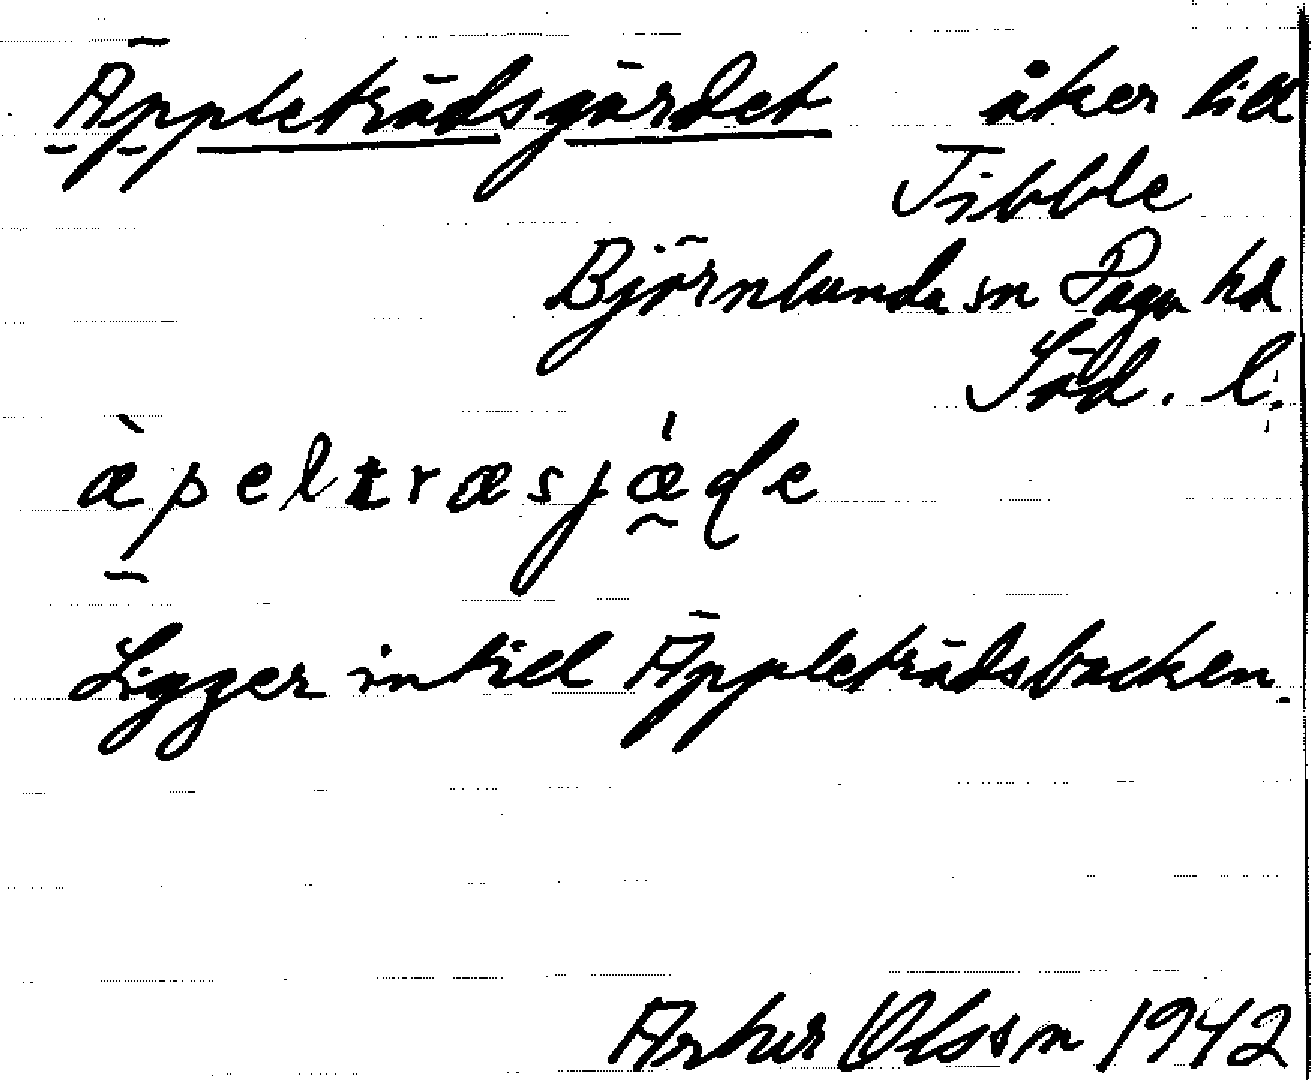 Äppleträdsgärdet åker till
Tibble
Björnlunda sn Daga hd
Söd. l.
æ̀peltræsjǽḍe
Ligger intill Äppleträdsbacken.
Artur Olsson 1942